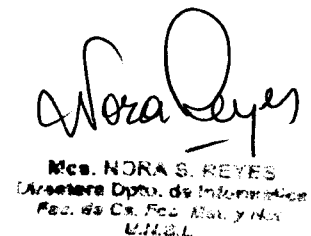 Nora Reyes
Mcs. NORA S. REYES
Directora Dpto. de Informática
Fac. de Cs. Fco. Mat. y Nat.
U.N.S.L.